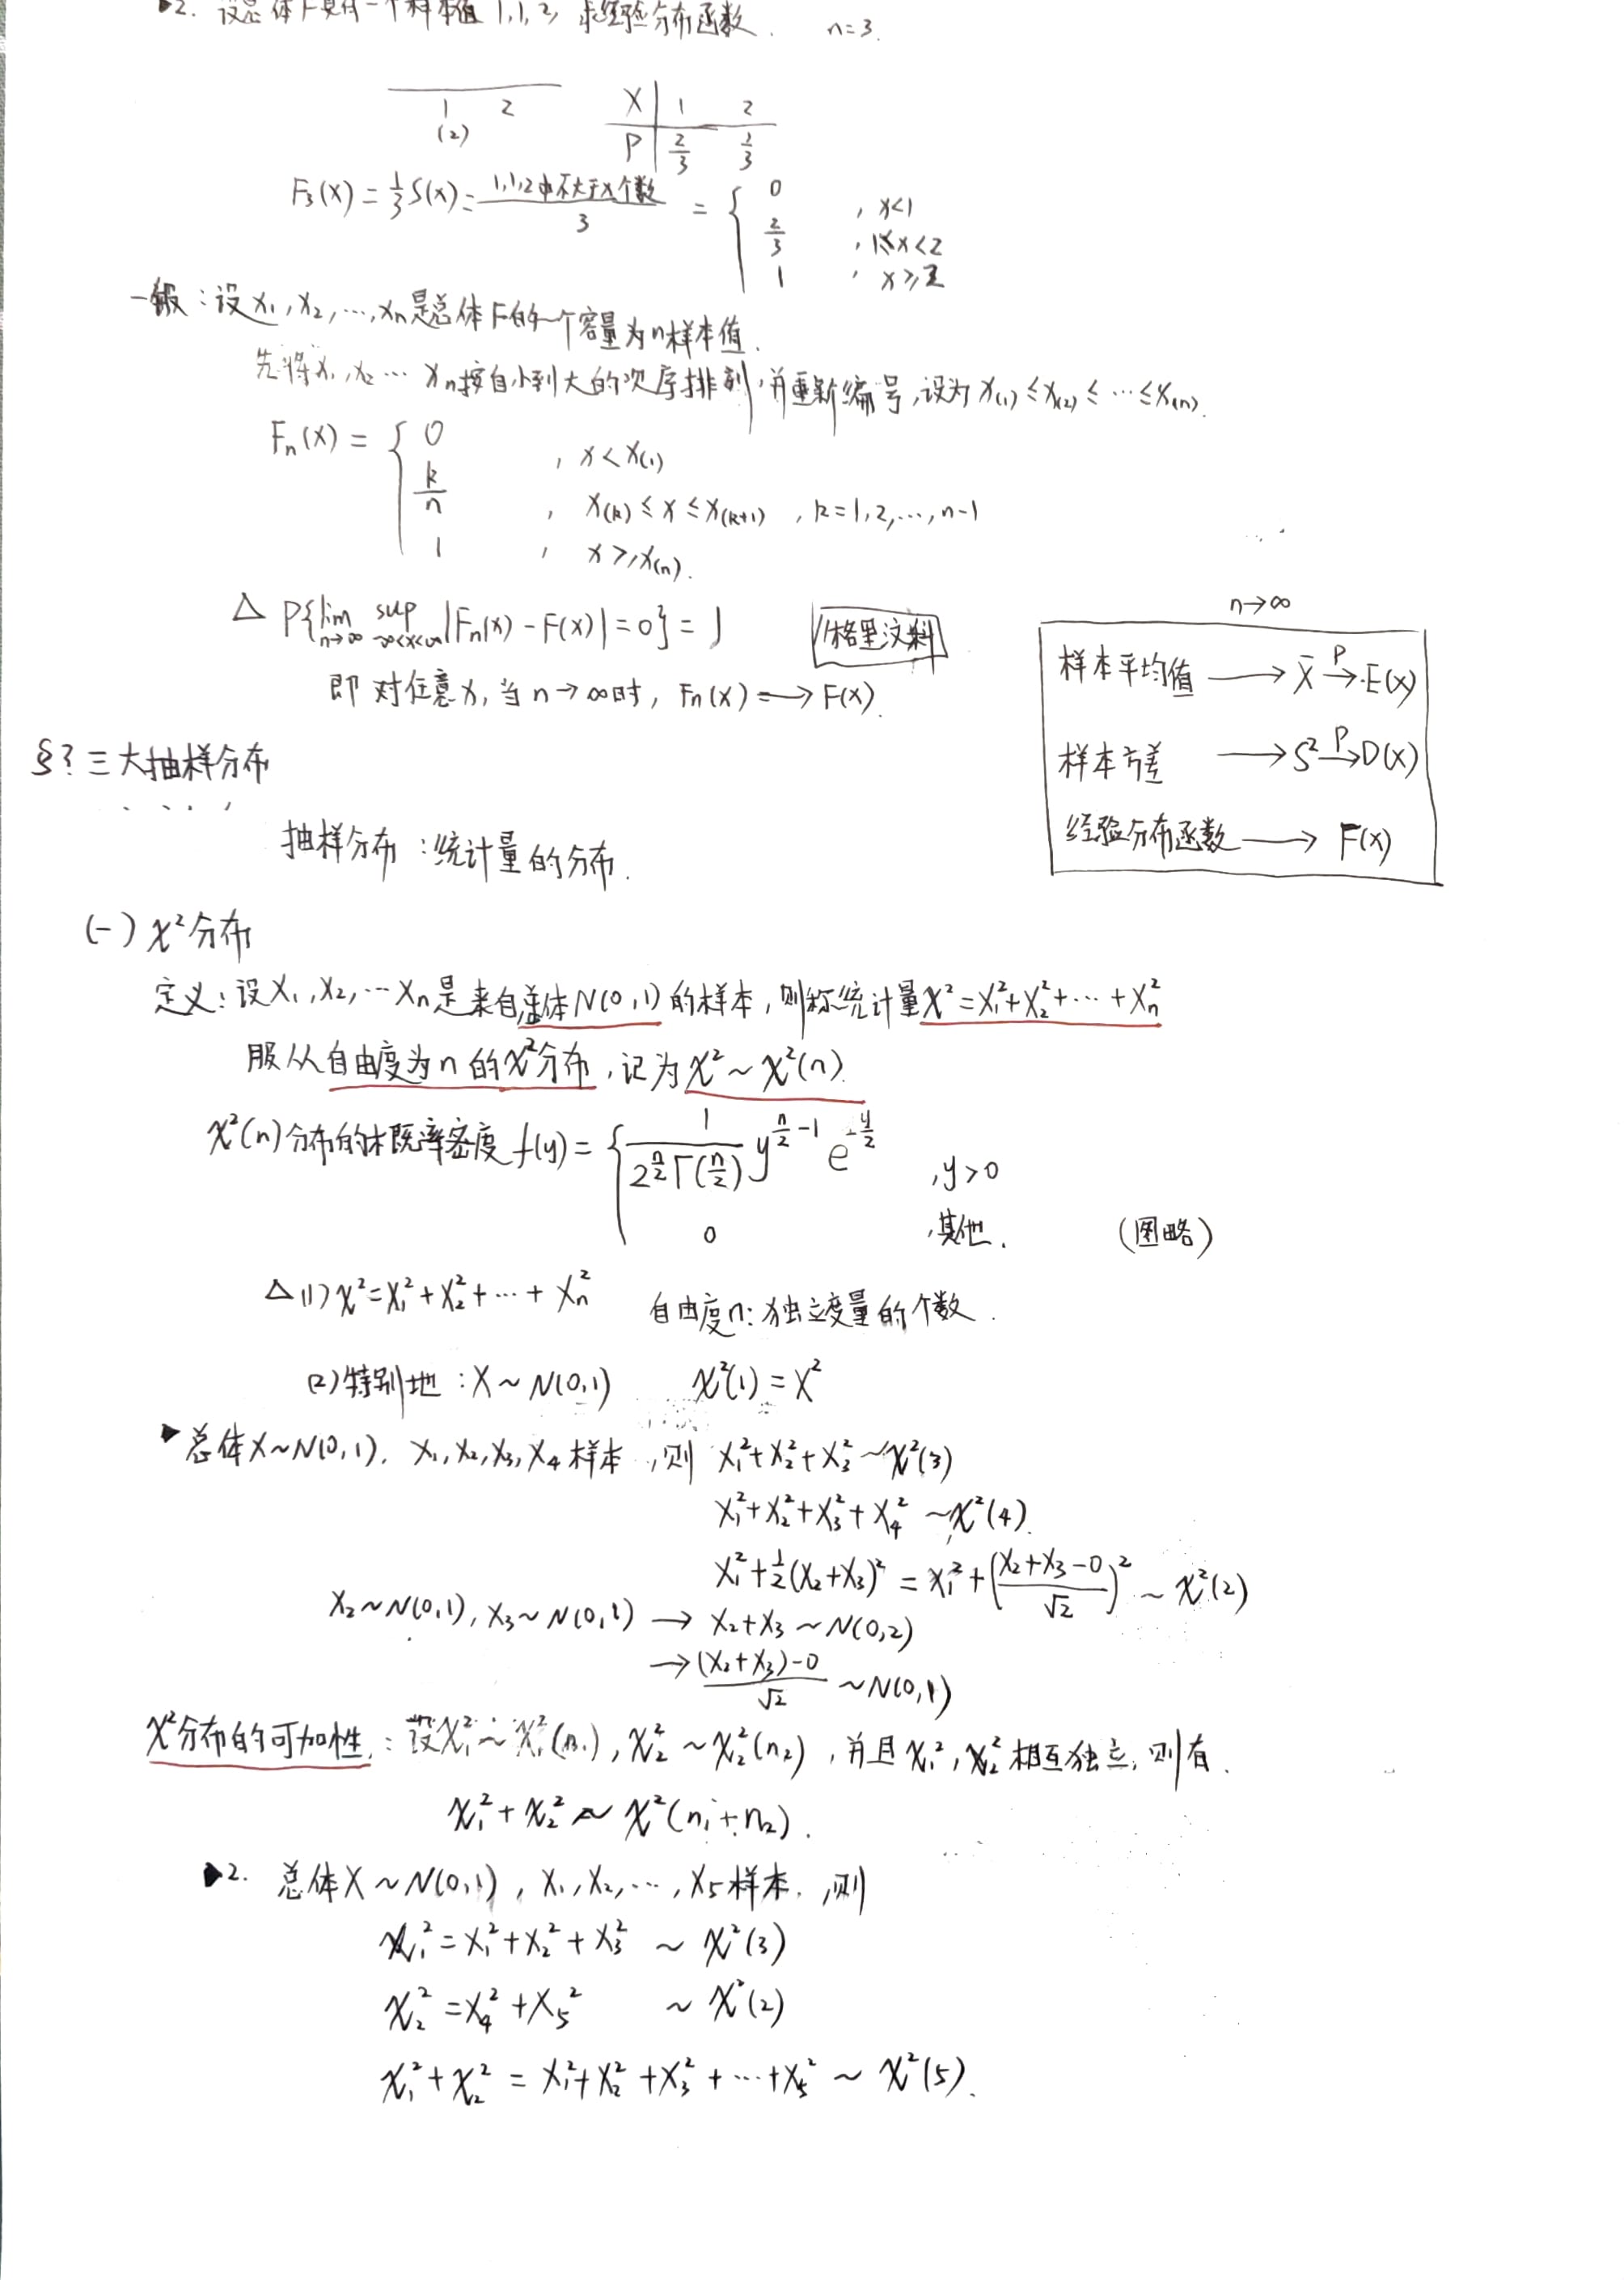 ▶2. 设总体F具有一个样本值 1,1,2, 求经验分布函数. n=3.
1 2
(2)
X | 1 2
P | 2/3 1/3
F₃(x) = 1/3 S(x) = 1,1,2中不大于x个数/3 = { 0 , x<1
2/3 , 1≤x<2
1 , x≥2
一般:设x₁,x₂,…,xn是总体F的一个容量为n样本值.
先将x₁,x₂…xn按自小到大的次序排列,并重新编号,设为x(1)≤x(2)≤…≤x(n).
Fn(x) = { 0 , x<x(1)
k/n , x(k)≤x≤x(k+1) , k=1,2,…,n-1
1 , x≥x(n).
△ P{lim n→∞ sup -∞<x<∞ |Fn(x)-F(x)|=0}=1 格里汶科
即 对任意x,当n→∞时, Fn(x)→F(x).
n→∞
样本平均值 → X̄ →P E(x)
样本方差 → S² →P D(x)
经验分布函数 → F(x)
三大抽样分布
抽样分布:统计量的分布.
(一) χ²分布
定义:设X₁,X₂,…Xn是来自总体N(0,1)的样本,则称统计量χ²=X₁²+X₂²+…+Xn²
服从自由度为n的χ²分布,记为χ²~χ²(n).
χ²(n)分布的概率密度 f(y) = { 1/(2^(n/2) Γ(n/2)) y^(n/2-1) e^(-y/2) ,y>0
0 ,其他. (图略)
△(1) χ²=X₁²+X₂²+…+Xn² 自由度n:独立变量的个数.
(2)特别地:X~N(0,1) χ²(1)=X²
▶总体X~N(0,1). X₁,X₂,X₃,X₄样本,则 X₁²+X₂²+X₃²~χ²(3)
X₁²+X₂²+X₃²+X₄² ~χ²(4).
X₁²+1/2(X₂+X₃)² = X₁²+((X₂+X₃-0)/√2)² ~ χ²(2)
X₂~N(0,1), X₃~N(0,1) → X₂+X₃~N(0,2)
→ ((X₂+X₃)-0)/√2 ~N(0,1)
χ²分布的可加性:设χ₁²~χ₁²(n₁),χ₂²~χ₂²(n₂),并且χ₁²,χ₂²相互独立,则有.
χ₁²+χ₂² ~ χ²(n₁+n₂).
▶2. 总体X~N(0,1),X₁,X₂,…,X₅样本.,则
χ₁²=X₁²+X₂²+X₃² ~ χ²(3)
χ₂²=X₄²+X₅² ~ χ²(2)
χ₁²+χ₂² = X₁²+X₂²+X₃²+…+X₅² ~ χ²(5).